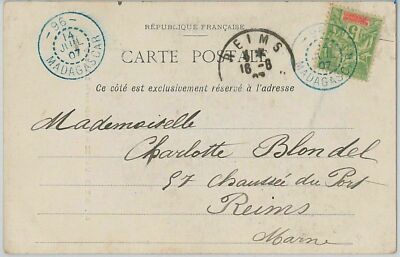 RÉPUBLIQUE FRANÇAISE
CARTE POSTALE
Ce côté est exclusivement réservé à l'adresse
96
14
JUIL
07
MADAGASCAR
REIMS
16-8
MADAGASCAR
07
5
Mademoiselle
Charlotte Blondel
57 Chaussée du Port
Reims
Marne